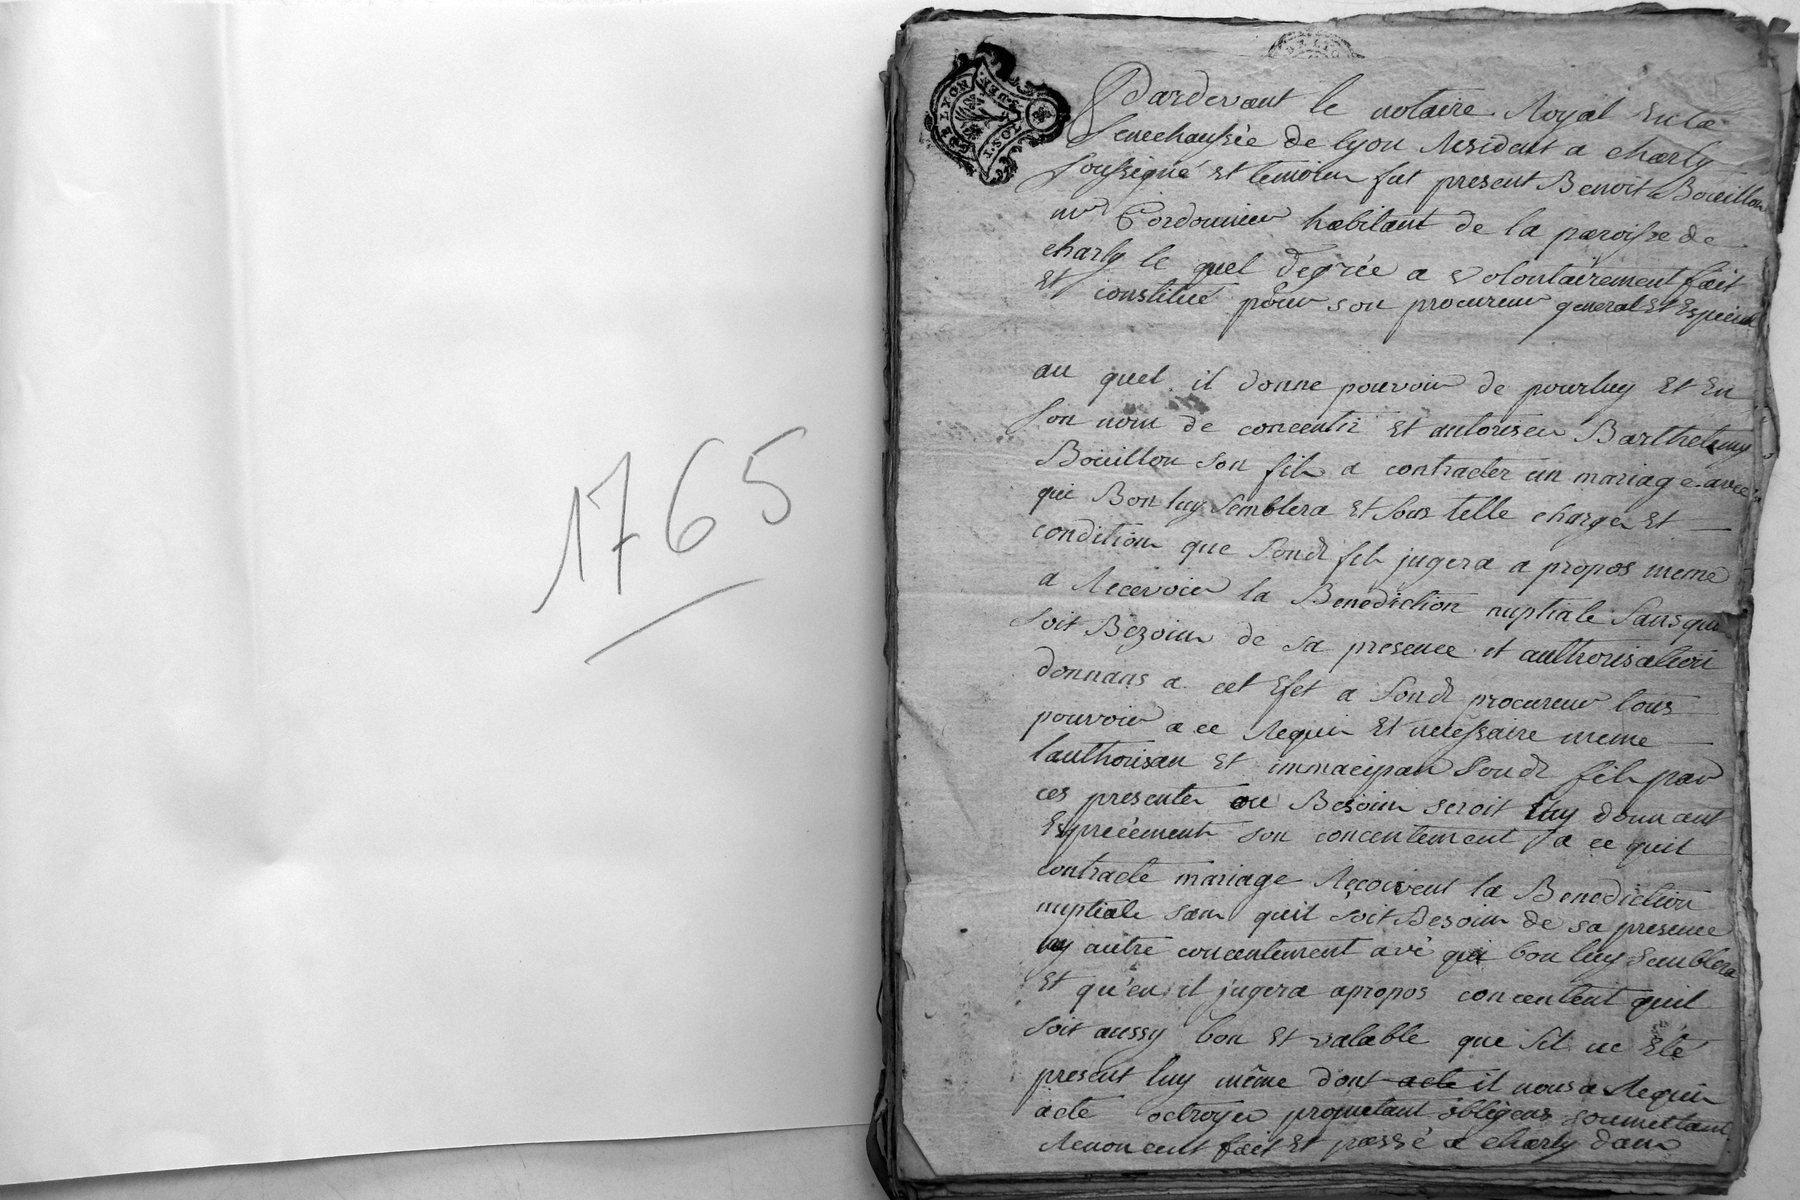 1765
DE LYON
Pardevant le notaire Royal En la
Senechaussée de lyon Resident a charly
Soussigné Et temoins fut present Benoit Boüillon
md Cordonnier habitant de la paroisse de
charly le quel degrée a volontairement fait
Et constitué pour son procureur general Et Especial
au quel il donne pouvoir de pour luy Et En
Son nom de concentir Et autoriser Barthelemy
Boüillon Son fils a contracter un mariage avec
qui Bon luy Semblera Et Sous telle charges Et
conditions que Sondt fils jugera a propos meme
a Recevoir la Benediction nuptiale Sans qui
Soit Bezoin de sa presence et authorisation
donnans a cet Efet a Sondt procureur tous
pouvoir a ce Requis Et necessaire meme
lauthorisan Et immacipan Soudt fils par
ces presentes ou Besoin seroit luy donnant
Espreċement son concentement a ce quil
contracte mariage Reçoivent la Benediction
nuptiale sans quil soit Besoin de sa presence
ny autre concentement avé qui bon luy Semblera
Et qu'en il jugera apropos concentent quil
Soit aussy bon Et valable que Sil ue Eté
present luy même dont acte il nous a Requis
acte octroyer prometant obligeans soumettant
Renoncent fait Et passé a charly dans